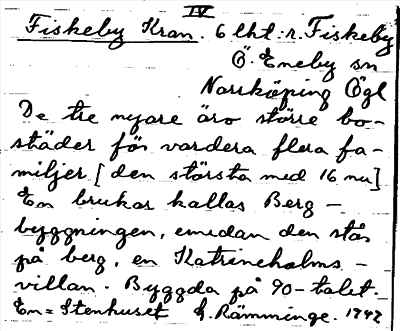 IV
Fiskeby Kran. 6 lht: r. Fiskeby
Ö. Eneby sn
Norrköping Ögl
De tre nyare äro större bo-
städer för vardera flera fa-
miljer [den största med 16 nu]
En brukar kallas Berg-
byggningen, emedan den står
på berg, en Katrineholms-
villan. Byggda på 90-talet.
En = Stenhuset h. Rämminge. 1942